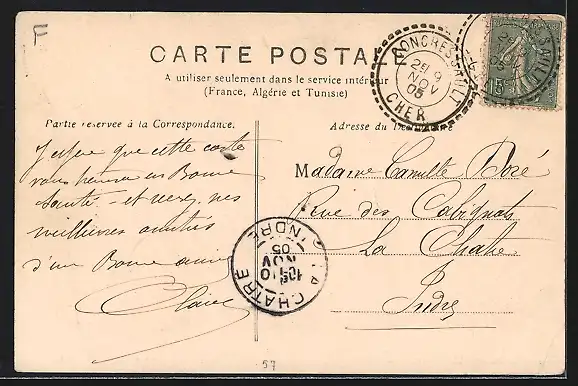 F
CARTE POSTALE
A utiliser seulement dans le service intérieur
(France, Algérie et Tunisie)
Partie réservée à la Correspondance.
Adresse du Destinataire
J'espère que cette carte
vous trouvera en Bonne
Santé - et reçevez mes
meilleures amitiés
d'une Bonne amie
Claire
Madame Camille Doré
Rue des Cabignats
La Chatre
Indre
CONCRESSAULT
9
NOV
05
CHER
15
LA CHATRE
10
NOV
05
INDRE
57